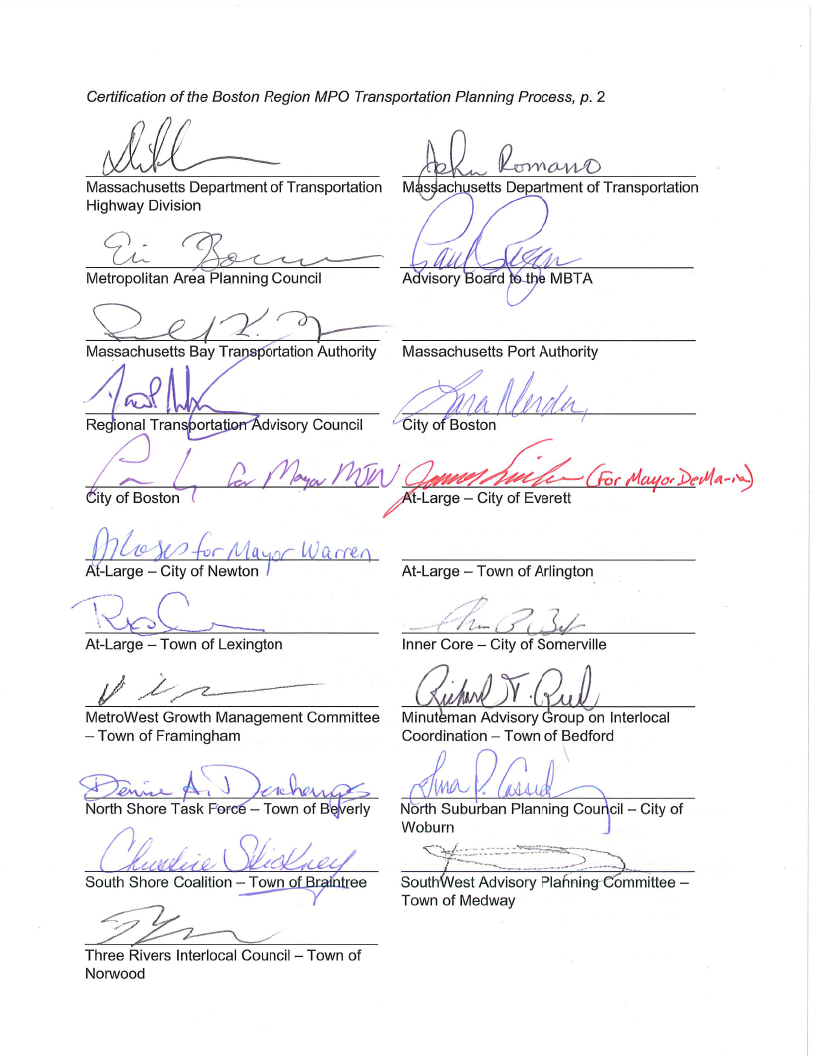 Certification of the Boston Region MPO Transportation Planning Process, p. 2
John Romano
Massachusetts Department of Transportation
Highway Division
Massachusetts Department of Transportation
Paul Regan
Metropolitan Area Planning Council
Advisory Board to the MBTA
Massachusetts Bay Transportation Authority
Massachusetts Port Authority
Regional Transportation Advisory Council
City of Boston
for Mayor MJW
(For Mayor DeMaria)
City of Boston
At-Large – City of Everett
for Mayor Warren
At-Large – City of Newton
At-Large – Town of Arlington
At-Large – Town of Lexington
Inner Core – City of Somerville
Richard T. Reed
MetroWest Growth Management Committee
– Town of Framingham
Minuteman Advisory Group on Interlocal
Coordination – Town of Bedford
Denise A. Deschamps
Tina P. Cassidy
North Shore Task Force – Town of Beverly
North Suburban Planning Council – City of
Woburn
Christine Stickney
South Shore Coalition – Town of Braintree
SouthWest Advisory Planning Committee –
Town of Medway
Three Rivers Interlocal Council – Town of
Norwood